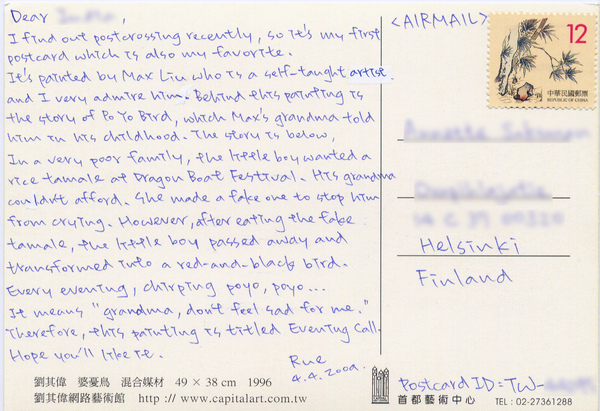 Dear ,
I find out postcrossing recently, so it's my first
postcard which is also my favorite.
It's painted by Max Liu who is a self-taught artist.
and I very admire him. Behind this painting is
the story of Po Yo Bird, which Max's grandma told
him in his childhood. The story is below,
In a very poor family, the little boy wanted a
rice tamale at Dragon Boat Festival. His grandma
couldn't afford. She made a fake one to stop him
from crying. However, after eating the fake
tamale, the little boy passed away and
transformed into a red-and-black bird.
Every evening, chirping poyo, poyo...
It means "grandma, don't feel sad for me."
Therefore, this painting is titled Evening Call.
Hope you'll like it.
Rue
4.4.2009.
劉其偉 婆憂鳥 混合媒材 49 × 38 cm 1996
劉其偉網路藝術館 http://www.capitalart.com.tw
<AIRMAIL>
12
中華民國郵票
REPUBLIC OF CHINA
Helsinki
Finland
Postcard ID = TW-
首都藝術中心 TEL : 02-27361288